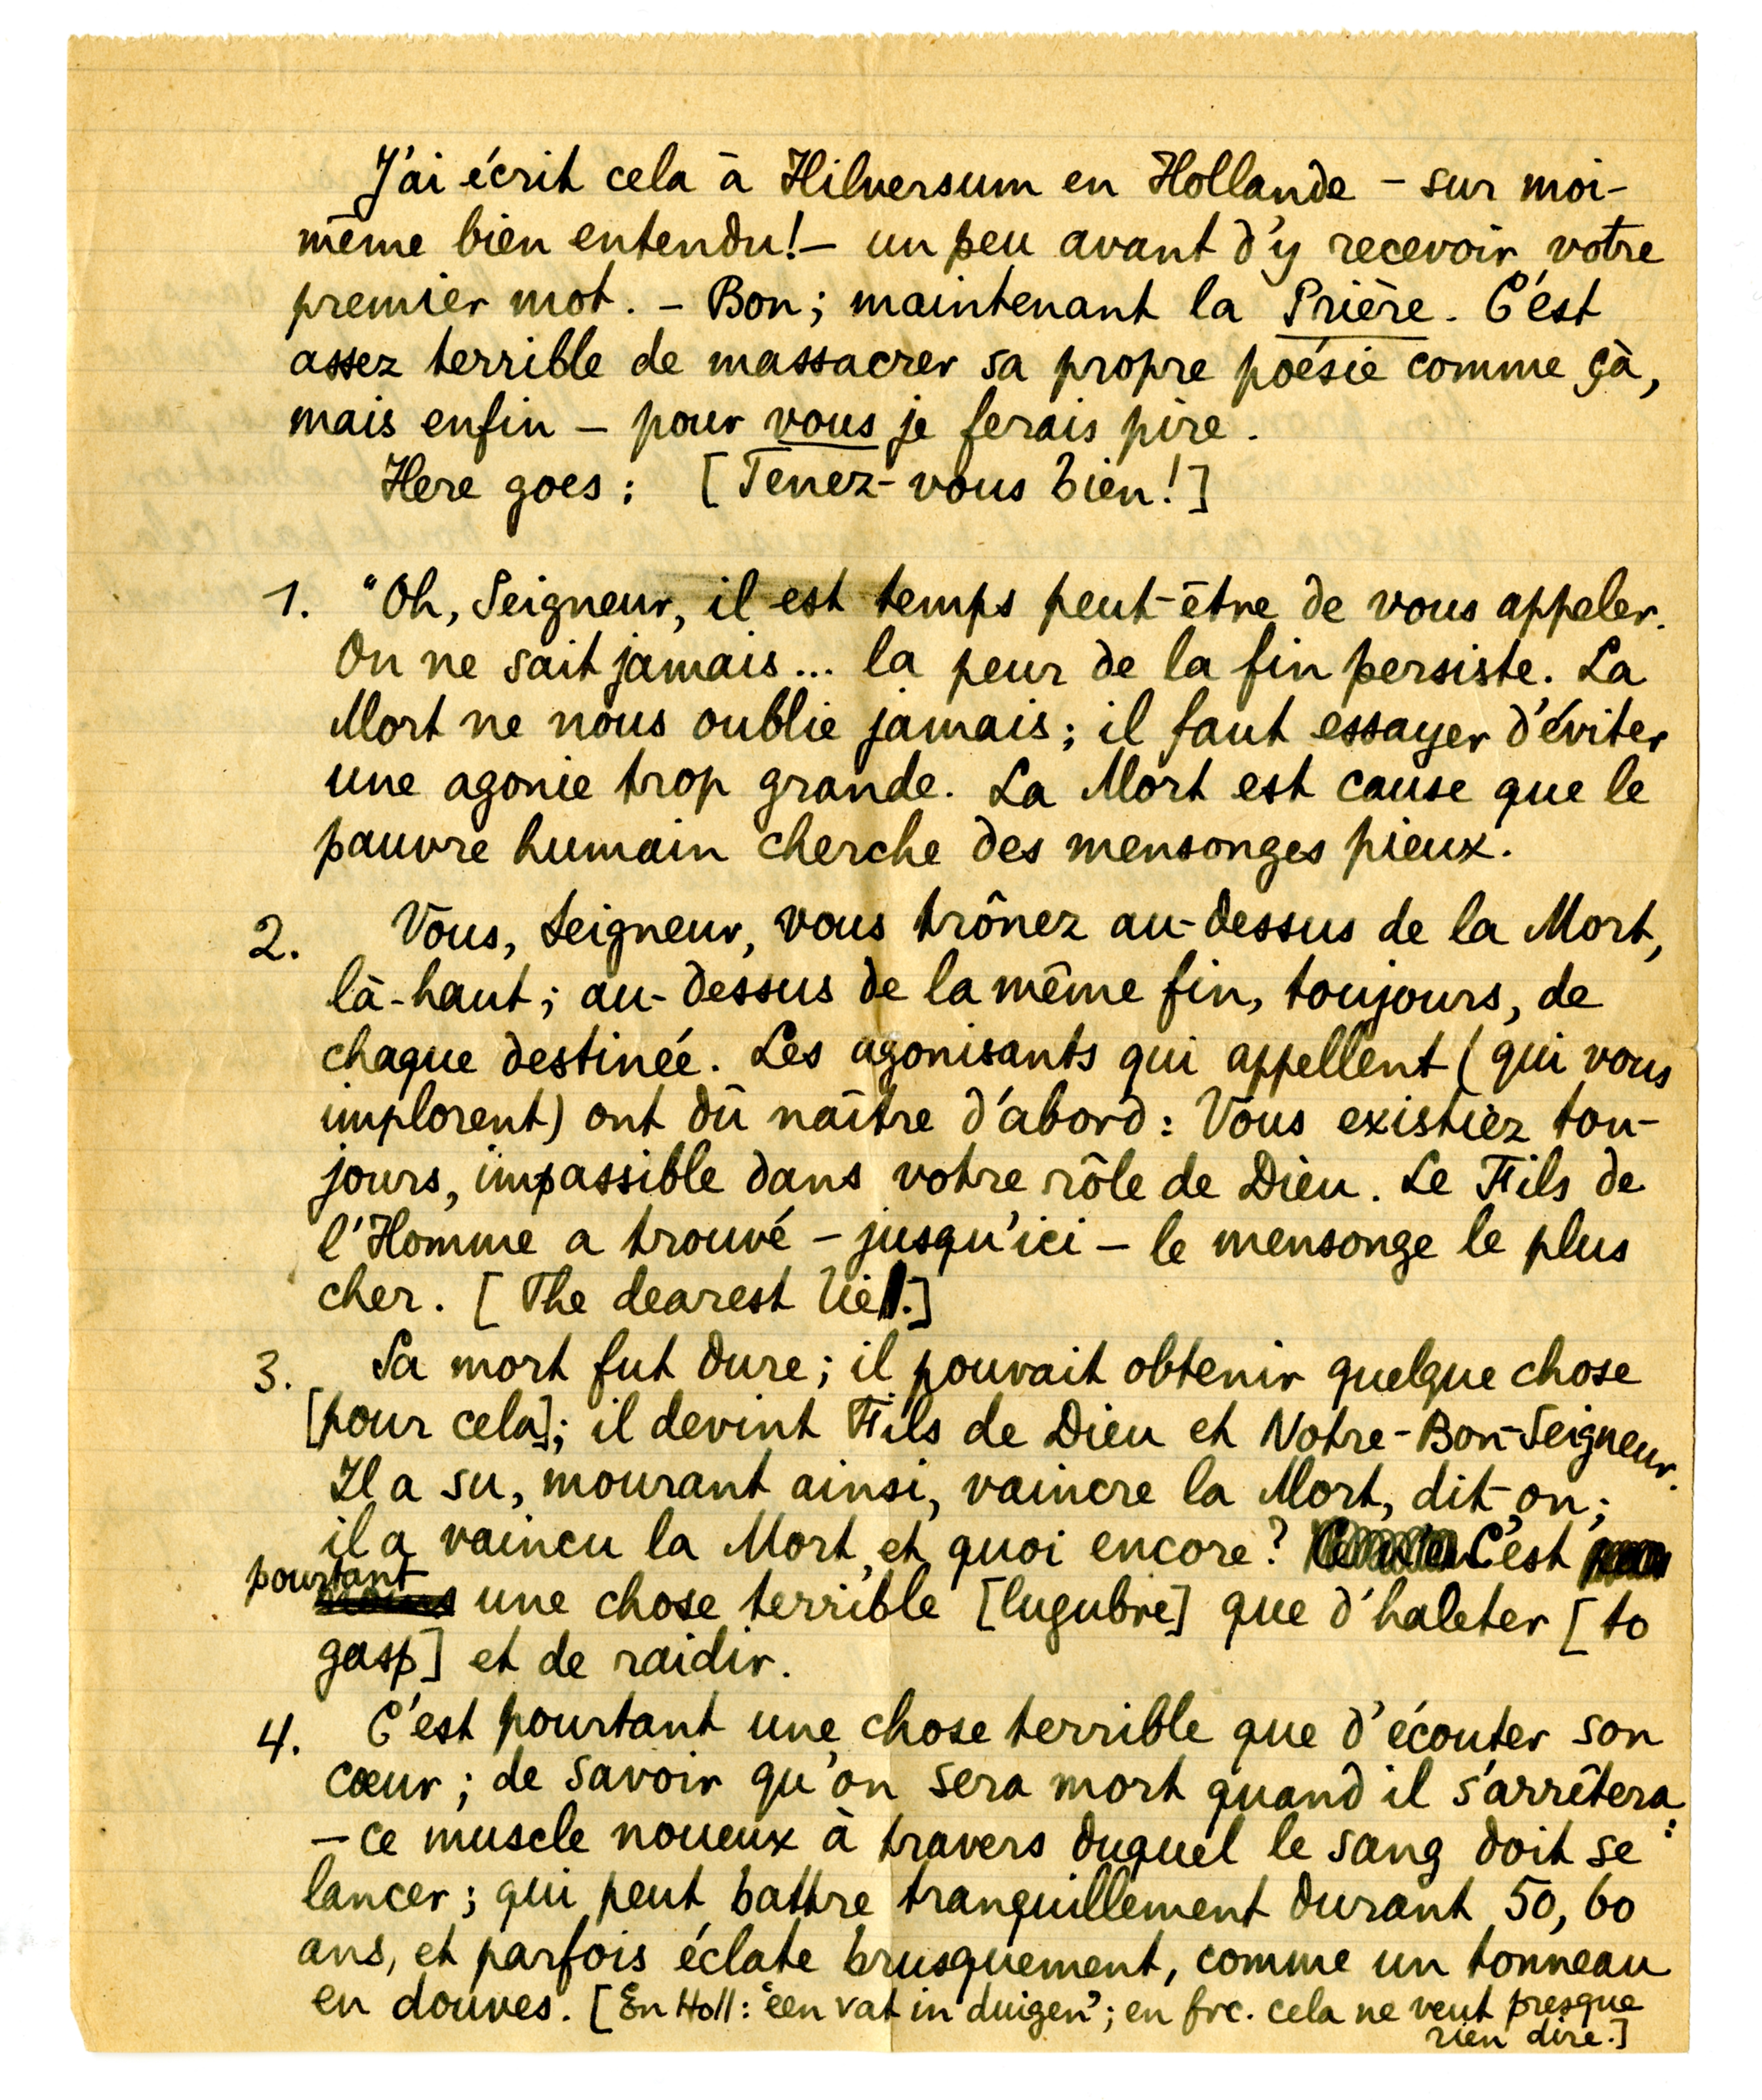 J'ai écrit cela à Hilversum en Hollande – sur moi-
même bien entendu! – un peu avant d'y recevoir votre
premier mot. – Bon; maintenant la Prière. C'est
assez terrible de massacrer sa propre poésie comme çà,
mais enfin – pour vous je ferais pire.
Here goes: [Tenez-vous bien!]
1. "Oh, Seigneur, il est temps peut-être de vous appeler.
On ne sait jamais... la peur de la fin persiste. La
Mort ne nous oublie jamais; il faut essayer d'éviter
une agonie trop grande. La Mort est cause que le
pauvre humain cherche des mensonges pieux.
2. Vous, Seigneur, vous trônez au-dessus de la Mort,
là-haut; au-dessus de la même fin, toujours, de
chaque destinée. Les agonisants qui appellent (qui vous
implorent) ont dû naître d'abord: Vous existiez tou-
jours, impassible dans votre rôle de Dieu. Le Fils de
l'Homme a trouvé – jusqu'ici – le mensonge le plus
cher. [The dearest lie.]
3. Sa mort fut dure; il pouvait obtenir quelque chose
[pour cela]; il devint Fils de Dieu et Notre-Bon-Seigneur.
Il a su, mourant ainsi, vaincre la Mort, dit-on;
il a vaincu la Mort, et quoi encore? C'est
pourtant une chose terrible [lugubre] que d'haleter [to
gasp] et de raidir.
4. C'est pourtant une chose terrible que d'écouter son
cœur; de savoir qu'on sera mort quand il s'arrêtera:
– ce muscle noueux à travers duquel le sang doit se
lancer; qui peut battre tranquillement durant 50, 60
ans, et parfois éclate brusquement, comme un tonneau
en douves. [En Holl: "een vat in duigen"; en frc. cela ne veut presque
rien dire.]